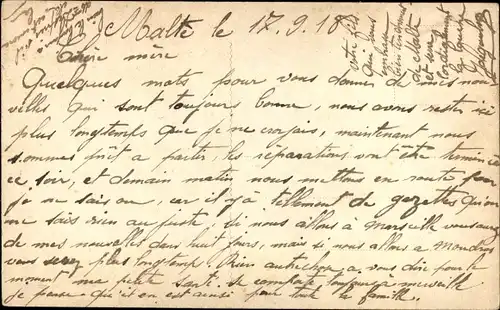 Malte le 17.9.18
Chère mère
Quelques mots pour vous donner de mes nou
velles qui sont toujours bonne, nous avons rester ici
plus longtemps que je ne croyais, maintenant nous
sommes prêt a partir, les réparations vont être terminées
ce soir, et demain matin nous mettons en route pour
je ne sais ou, car il y a tellement de gazettes qu'on
ne sais rien au juste, si nous allons à Marseille vous aurez
de mes nouvelles dans huit jours, mais si nous allons a Moudros
vous serez plus longtemps. Rien autre chose a vous dire pour le
moment ma petite santé se comporte toujours a merveille
je pense qu'il en est ainsi pour toute la famille.
votre fils
qui vous
embrasse
bien tendrement
de Malte
et son